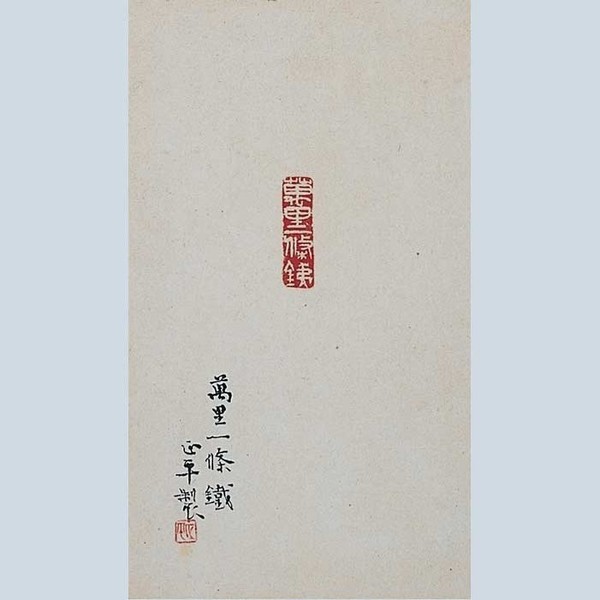 萬里一條銕
萬里一條鐵
正平製